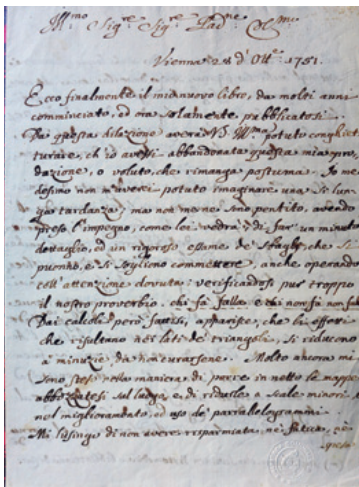 Ill.mo Sig.re Sig.re Pad.ne Col.mo
Vienna 28 d' Ott.e 1751.
Ecco finalmente il mio nuovo libro, da molti anni
comminciato, ed ora solamente pubblicatosi.
Da questa dilazione averà VS. Ill.ma potuto conghiet
turare, ch' io avessi abbandonata questa mia pro,
dazione, o voluto, che rimanga postuma. Io me
desimo non m'averei potuto imaginare una si lun
ga tardanza; ma non me ne sono pentito, avendo
preso l'impegno, come lei vedrà, di far un minuto
dettaglio, ed un rigoroso essame de' sfaglj, che si
puonno, e si sogliono commettere, anche operando
coll' attenzione dovuta: verificandosi pur troppo
il nostro proverbio, chi fà falla e chi non fà non fal
Dai calcoli però fattisi, apparisce, che li effetti
che risultano nei lati de' triangoli, si riducono
a minuzie da non curarsene. Molto ancora mi
sono steso nella maniera, di porre in netto le mappe
abbozzatesi sul luogo, e di ridurle a scale minori,
nel migliorandato, ed uso de' parrallelogrammi.
Mi lusingo di non avere risparmiata, nè fatica, nè